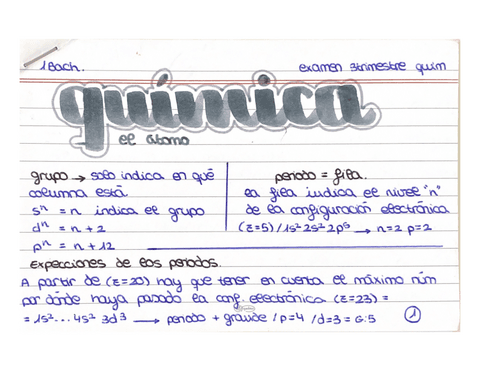 1Bach.
examen 3trimestre quim
química
el átomo
grupo → solo indica en qué
columna está
sⁿ = n indica el grupo
dⁿ = n + 2
pⁿ = n + 12
periodo = fila.
la fila indica el nivel "n"
de la configuración electrónica
(z=5) / 1s² 2s² 2p⁵ → n=2 p=2
Expecciones de los periodos.
A partir de (z=20) hay que tener en cuenta el máximo núm
por dónde haya pasado la conf. electrónica (z=23) =
= 1s² ... 4s² 3d³ → periodo + grande / p=4 / d=3 = G:5
1